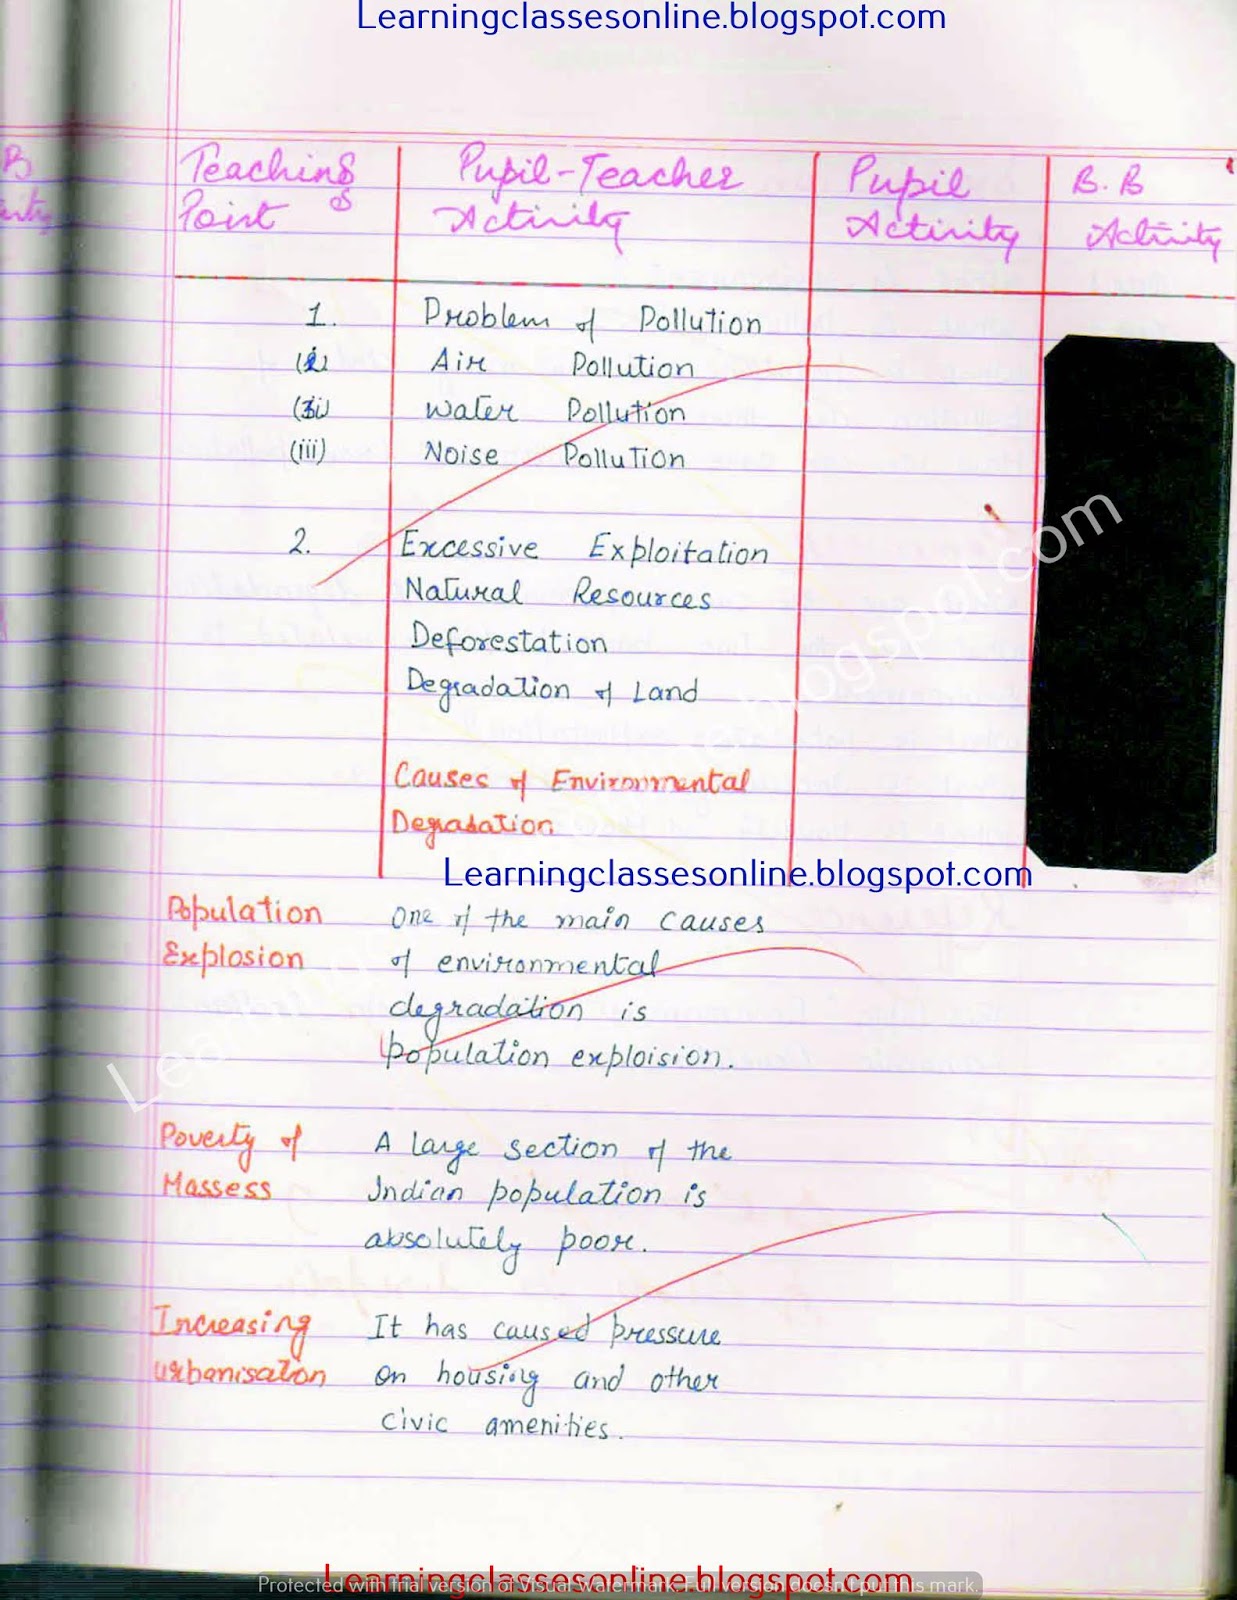 Learningclassesonline.blogspot.com
Teaching Pupil-Teacher Pupil B.B
Point Activity Activity Activity
1. Problem of Pollution
(i) Air Pollution
(ii) Water Pollution
(iii) Noise Pollution
2. Excessive Exploitation
Natural Resources
Deforestation
Degradation of Land
Causes of Environmental
Degradation
Learningclassesonline.blogspot.com
Population One of the main causes
Explosion of environmental
degradation is
population exploision.
Poverty of A large section of the
Massess Indian population is
absolutely poor.
Increasing It has caused pressure
urbanisation on housing and other
civic amenities.
Learningclassesonline.blogspot.com
Protected with trial version of Visual Watermark. Full version doesn't put this mark.